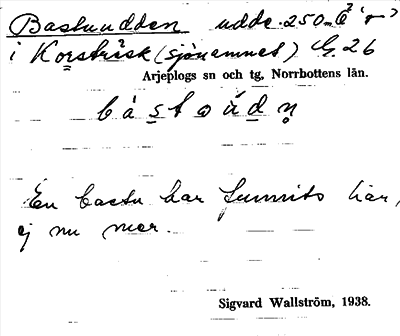 Bastuudden udde. 250 m Ö "r"
i Korsträsk (sjönamnet) G. 26
Arjeplogs sn och tg, Norrbottens län.
bástuúdn̥
En bastu har funnits här,
ej nu mer.
Sigvard Wallström, 1938.